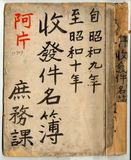 自昭和九年
至昭和十年
收發件名簿
庶務課
阿片